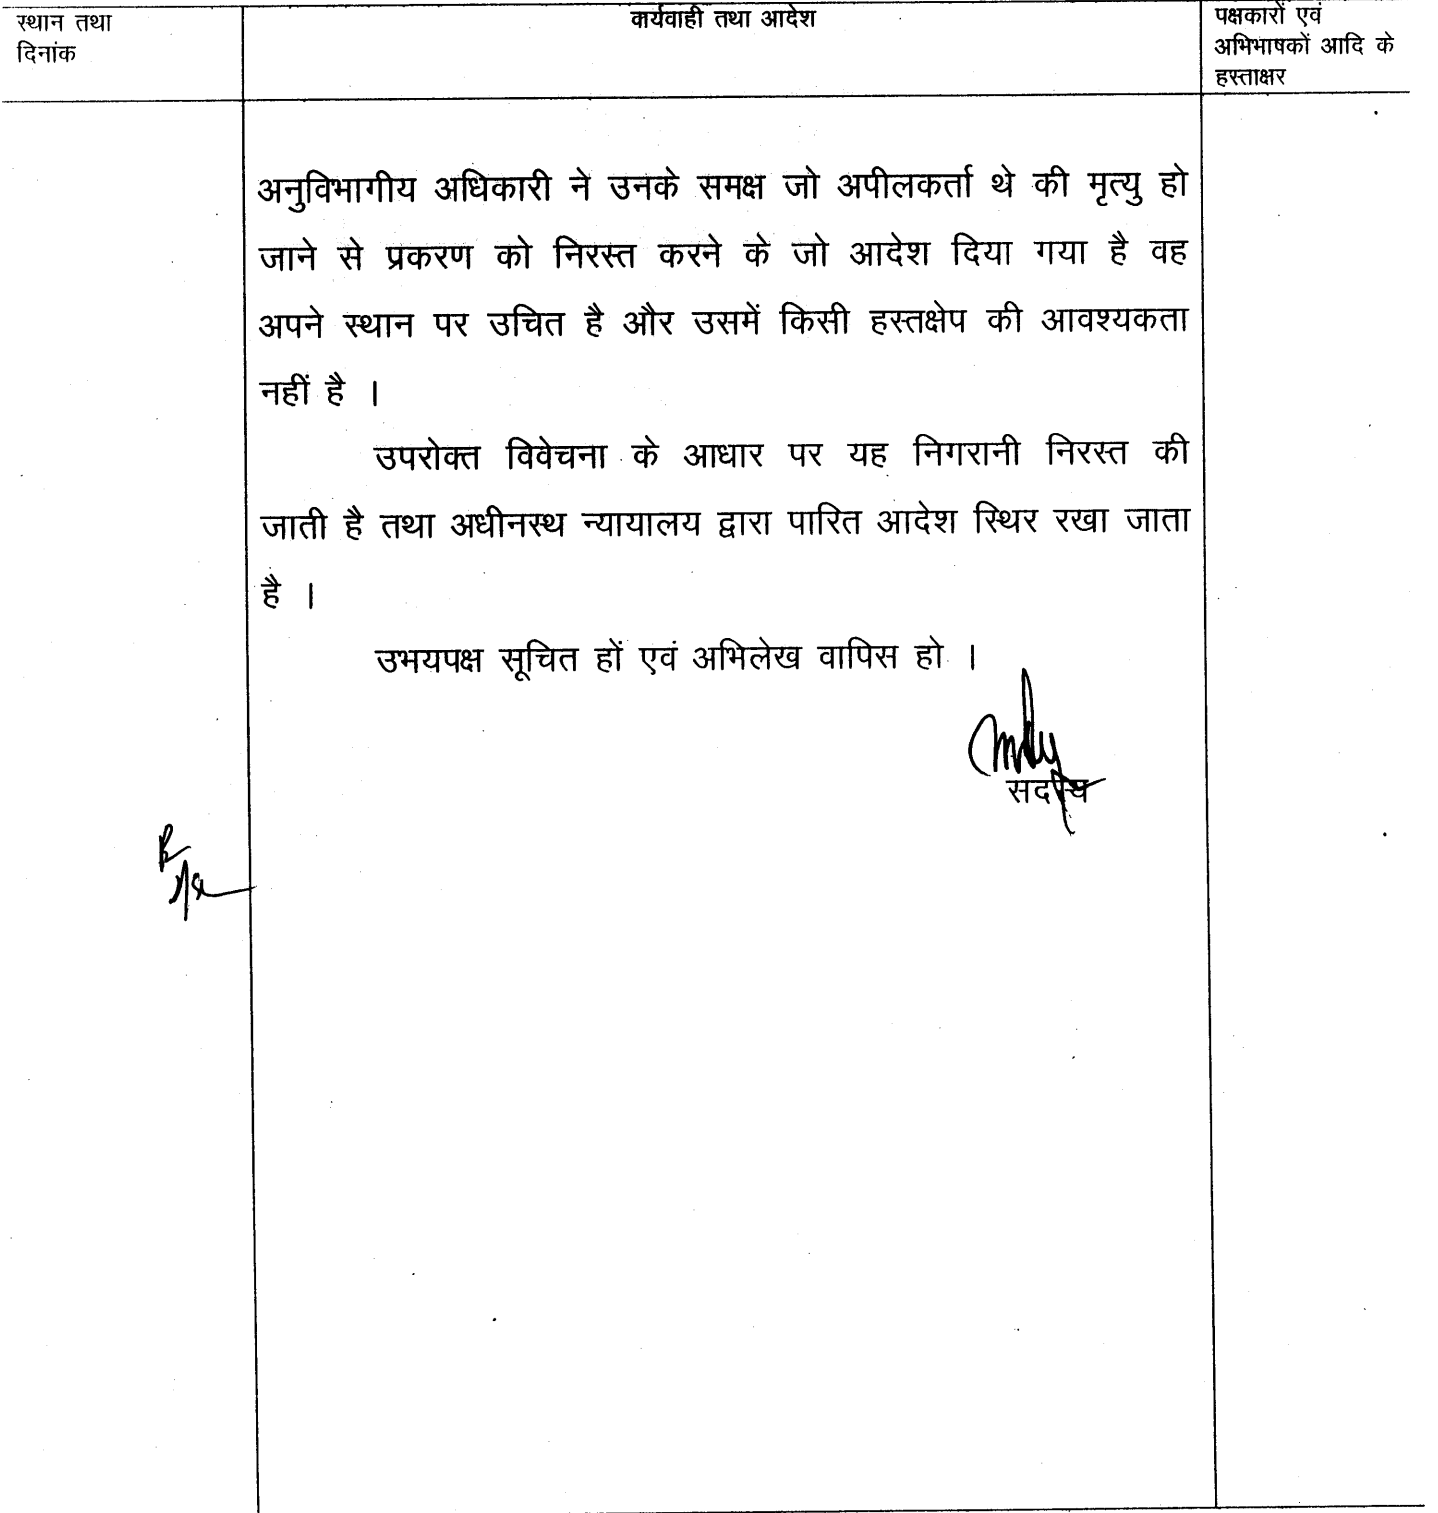 स्थान तथा
दिनांक
कार्यवाही तथा आदेश
पक्षकारों एवं
अभिभाषकों आदि के
हस्ताक्षर
अनुविभागीय अधिकारी ने उनके समक्ष जो अपीलकर्ता थे की मृत्यु हो
जाने से प्रकरण को निरस्त करने के जो आदेश दिया गया है वह
अपने स्थान पर उचित है और उसमें किसी हस्तक्षेप की आवश्यकता
नहीं है ।
उपरोक्त विवेचना के आधार पर यह निगरानी निरस्त की
जाती है तथा अधीनस्थ न्यायालय द्वारा पारित आदेश स्थिर रखा जाता
है ।
उभयपक्ष सूचित हों एवं अभिलेख वापिस हो ।
सदस्य